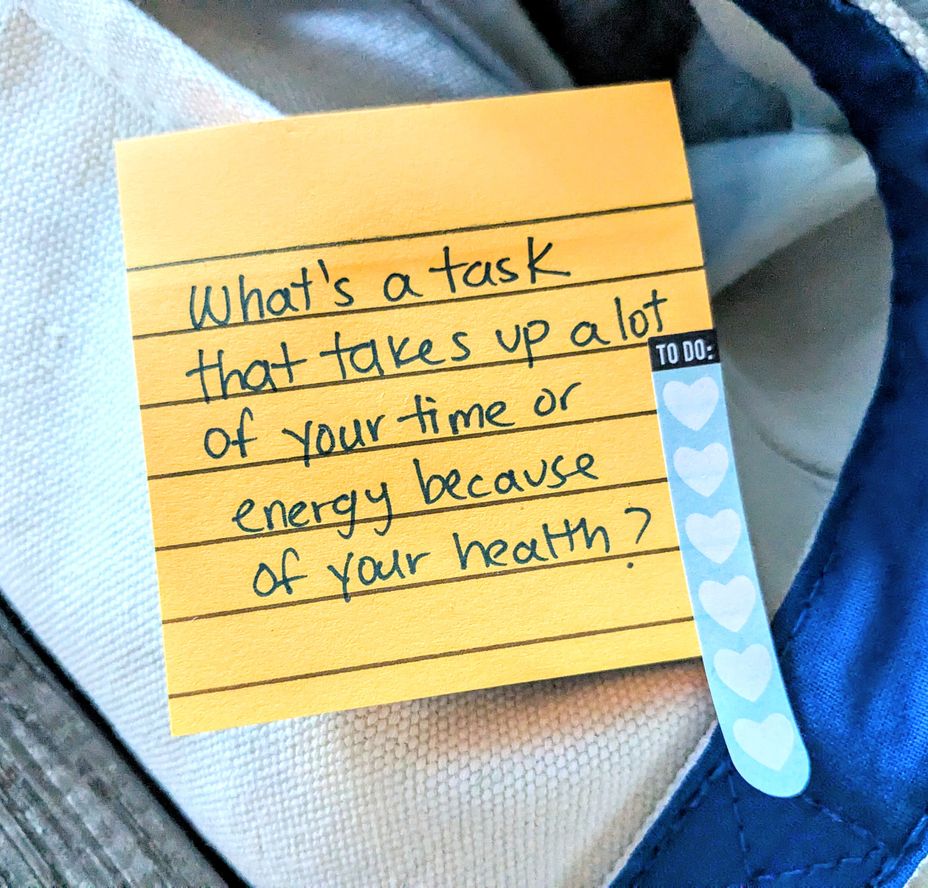 What's a task
that takes up a lot
of your time or
energy because
of your health?
TO DO: